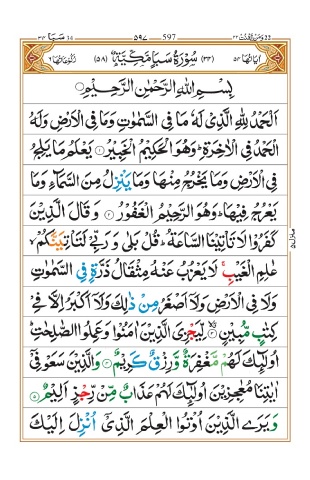 سبا ٣٤ ٥٩٧ 597 ومن يقنت ٢٢
اٰيَاتُهَا ٥٤ (٣٤) سُوْرَةُ سَبَاٍ مَّكِّيَّةٌ (٥٨) رُكُوْعَاتُهَا ٦
بِسْمِ اللّٰهِ الرَّحْمٰنِ الرَّحِيْمِ
اَلْحَمْدُ لِلّٰهِ الَّذِيْ لَهٗ مَا فِي السَّمٰوٰتِ وَمَا فِي الْاَرْضِ وَلَهُ
الْحَمْدُ فِي الْاٰخِرَةِ ؕ وَهُوَ الْحَكِيْمُ الْخَبِيْرُ ۝۱ يَعْلَمُ مَا يَلِجُ
فِي الْاَرْضِ وَمَا يَخْرُجُ مِنْهَا وَمَا يَنْزِلُ مِنَ السَّمَآءِ وَمَا
يَعْرُجُ فِيْهَا ؕ وَهُوَ الرَّحِيْمُ الْغَفُوْرُ ۝۲ وَقَالَ الَّذِيْنَ
كَفَرُوْا لَا تَاْتِيْنَا السَّاعَةُ ؕ قُلْ بَلٰى وَرَبِّيْ لَتَاْتِيَنَّكُمْ ۙ
عٰلِمِ الْغَيْبِ ۚ لَا يَعْزُبُ عَنْهُ مِثْقَالُ ذَرَّةٍ فِي السَّمٰوٰتِ
وَلَا فِي الْاَرْضِ وَلَاۤ اَصْغَرُ مِنْ ذٰلِكَ وَلَاۤ اَكْبَرُ اِلَّا فِيْ
كِتٰبٍ مُّبِيْنٍ ۝۳ لِّيَجْزِيَ الَّذِيْنَ اٰمَنُوْا وَعَمِلُوا الصّٰلِحٰتِ ؕ
اُولٰٓئِكَ لَهُمْ مَّغْفِرَةٌ وَّرِزْقٌ كَرِيْمٌ ۝۴ وَالَّذِيْنَ سَعَوْ فِيْۤ
اٰيٰتِنَا مُعٰجِزِيْنَ اُولٰٓئِكَ لَهُمْ عَذَابٌ مِّنْ رِّجْزٍ اَلِيْمٌ ۝۵
وَيَرَى الَّذِيْنَ اُوْتُوا الْعِلْمَ الَّذِيْۤ اُنْزِلَ اِلَيْكَ